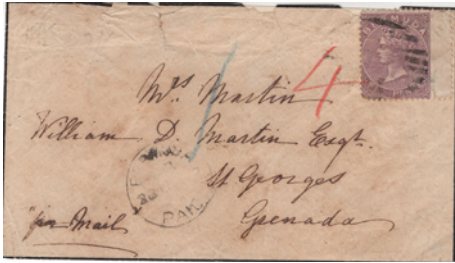 4
Mrs Martin
William D. Martin Esqr.
St Georges
Grenada
per Mail